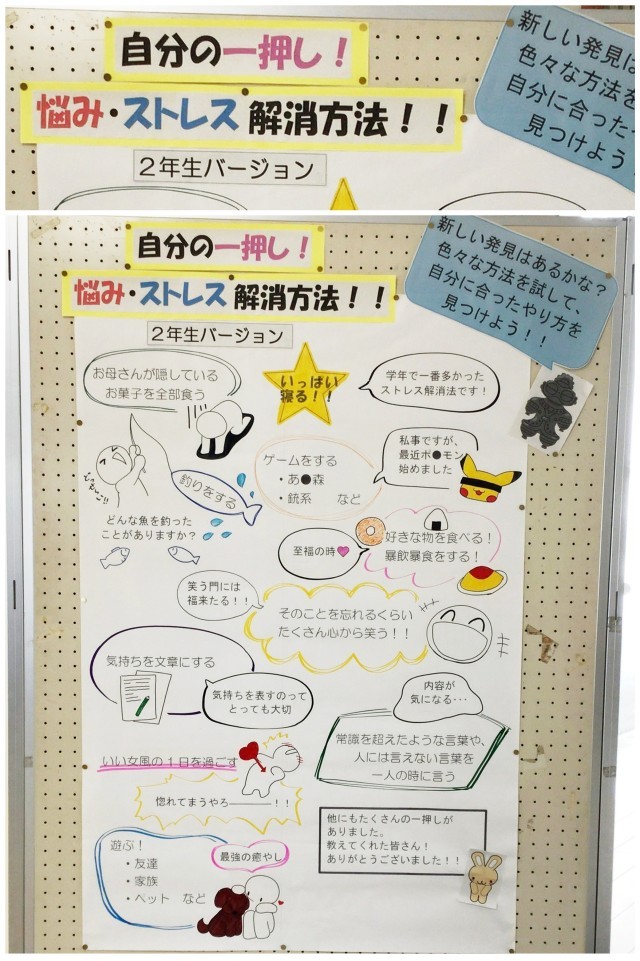 自分の一押し！
悩み・ストレス解消方法！！
2年生バージョン
新しい発見は
色々な方法を
自分に合った
見つけよう！
自分の一押し！
悩み・ストレス解消方法！！
2年生バージョン
新しい発見はあるかな？
色々な方法を試して、
自分に合ったやり方を
見つけよう！！
お母さんが隠している
お菓子を全部食う
いっぱい
寝る！！
学年で一番多かった
ストレス解消法です！
釣りをする
どんな魚を釣った
ことがありますか？
ゲームをする
・あ●森
・銃系　など
私事ですが、
最近ポ●モン
始めました
至福の時
好きな物を食べる！
暴飲暴食をする！
笑う門には
福来たる！！
そのことを忘れるくらい
たくさん心から笑う！！
気持ちを文章にする
気持ちを表すのって
とっても大切
内容が
気になる・・・
常識を超えたような言葉や、
人には言えない言葉を
一人の時に言う
いい女風の1日を過ごす
惚れてまうやろ————！！
他にもたくさんの一押しが
ありました。
教えてくれた皆さん！
ありがとうございました！！
遊ぶ！
・友達
・家族
・ペット　など
最強の癒やし